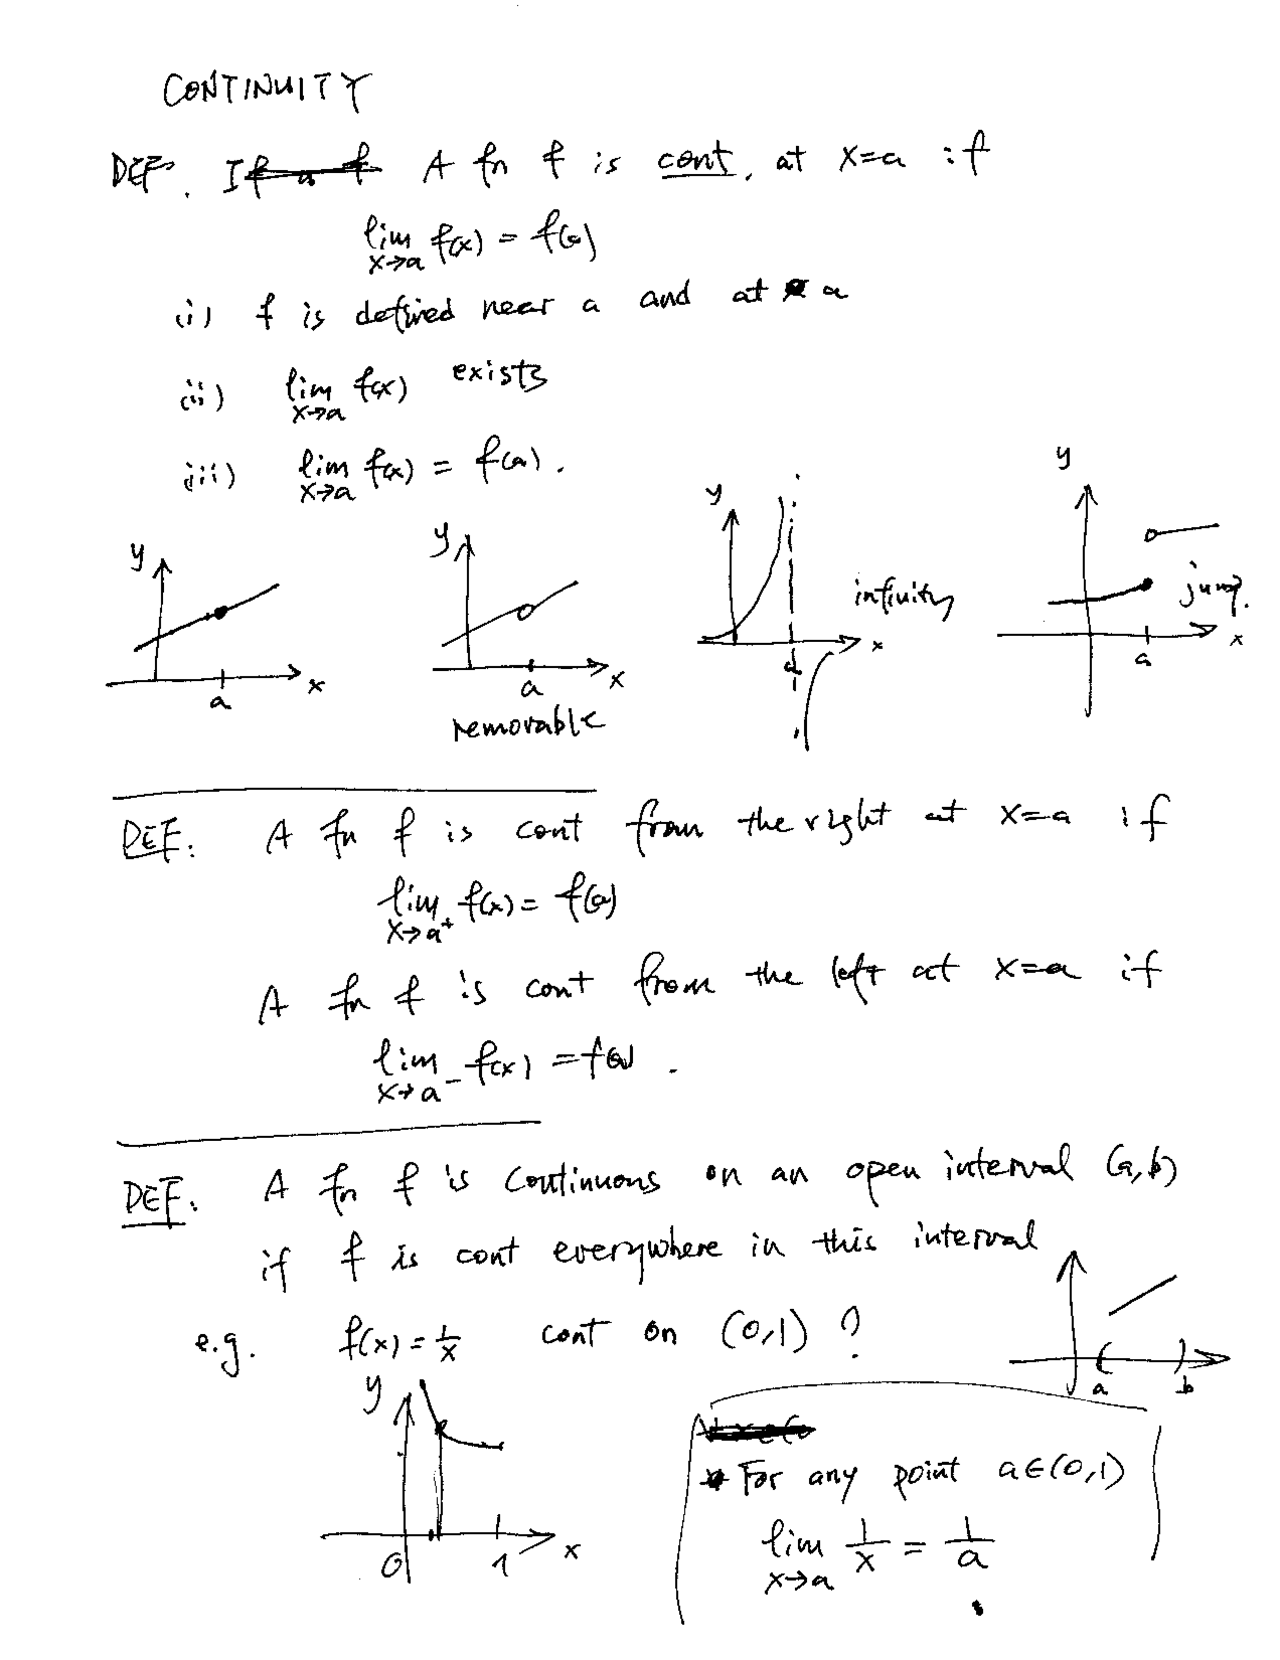 CONTINUITY
DEF. If a f A fn f is cont. at x=a if
lim f(x) = f(a)
x→a
(i) f is defined near a and at a
(ii) lim f(x) exists
x→a
iii) lim f(x) = f(a).
x→a
y x a
y x a removable
y x a infinity
y x a jump.
DEF: A fn f is cont from the right at x=a if
lim f(x) = f(a)
x→a⁺
A fn f is cont from the left at x=a if
lim f(x) = f(a).
x→a⁻
DEF: A fn f is continuous on an open interval (a,b)
if f is cont everywhere in this interval
a b
e.g. f(x) = 1/x cont on (0,1) ?
y 0 1 x
For any point a∈(0,1)
lim 1/x = 1/a
x→a